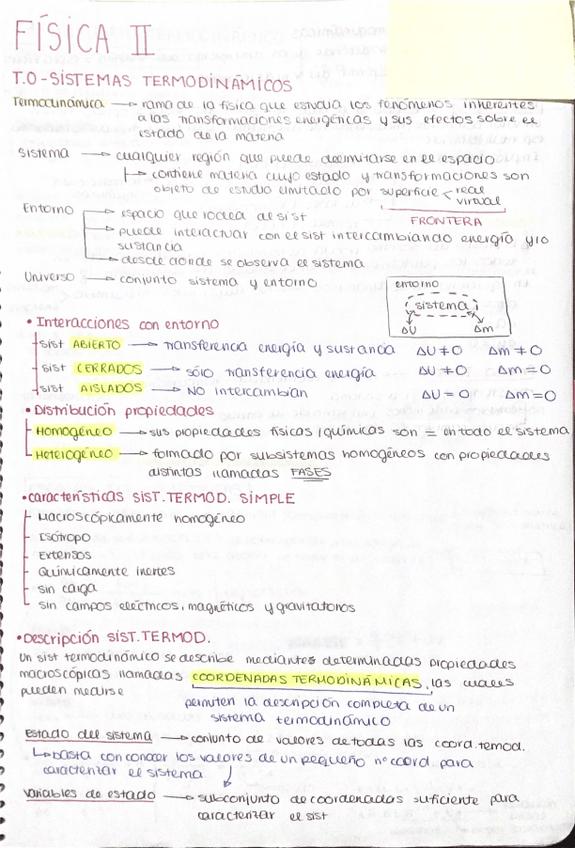 FÍSICA II
T.0 - SISTEMAS TERMODINÁMICOS
Termodinámica → rama de la física que estudia los fenómenos inherentes
a las transformaciones energéticas y sus efectos sobre el
estado de la materia
Sistema → cualquier región que puede delimitarse en el espacio
↳ contiene materia cuyo estado y transformaciones son
objeto de estudio limitado por superficie < real
virtual
FRONTERA
Entorno → espacio que rodea al sist
→ puede interactuar con el sist intercambiando energía y/o
sustancia
→ desde donde se observa el sistema
Universo → conjunto sistema y entorno
entorno
sistema
ΔU Δm
• Interacciones con entorno
sist ABIERTO → transferencia energía y sustancia ΔU ≠ 0 Δm ≠ 0
sist CERRADOS → sólo transferencia energía ΔU ≠ 0 Δm = 0
sist AISLADOS → NO intercambian ΔU = 0 Δm = 0
• Distribución propiedades
Homogéneo → sus propiedades físicas/químicas son = en todo el sistema
Heterogéneo → formado por subsistemas homogéneos con propiedades
distintas llamadas FASES
• características SIST. TERMOD. SIMPLE
Macroscópicamente homogéneo
Isótropo
Extensos
Químicamente inertes
sin carga
sin campos eléctricos, magnéticos y gravitatorios
• Descripción SIST. TERMOD.
Un sist termodinámico se describe mediantes determinadas propiedades
macroscópicas llamadas COORDENADAS TERMODINÁMICAS, las cuales
pueden medirse
permiten la descripción completa de un
sistema termodinámico
Estado del sistema → conjunto de valores de todas las coord. temod.
↳ basta con conocer los valores de un pequeño nº coord para
caracterizar el sistema
Variables de estado → subconjunto de coordenadas suficiente para
caracterizar el sist